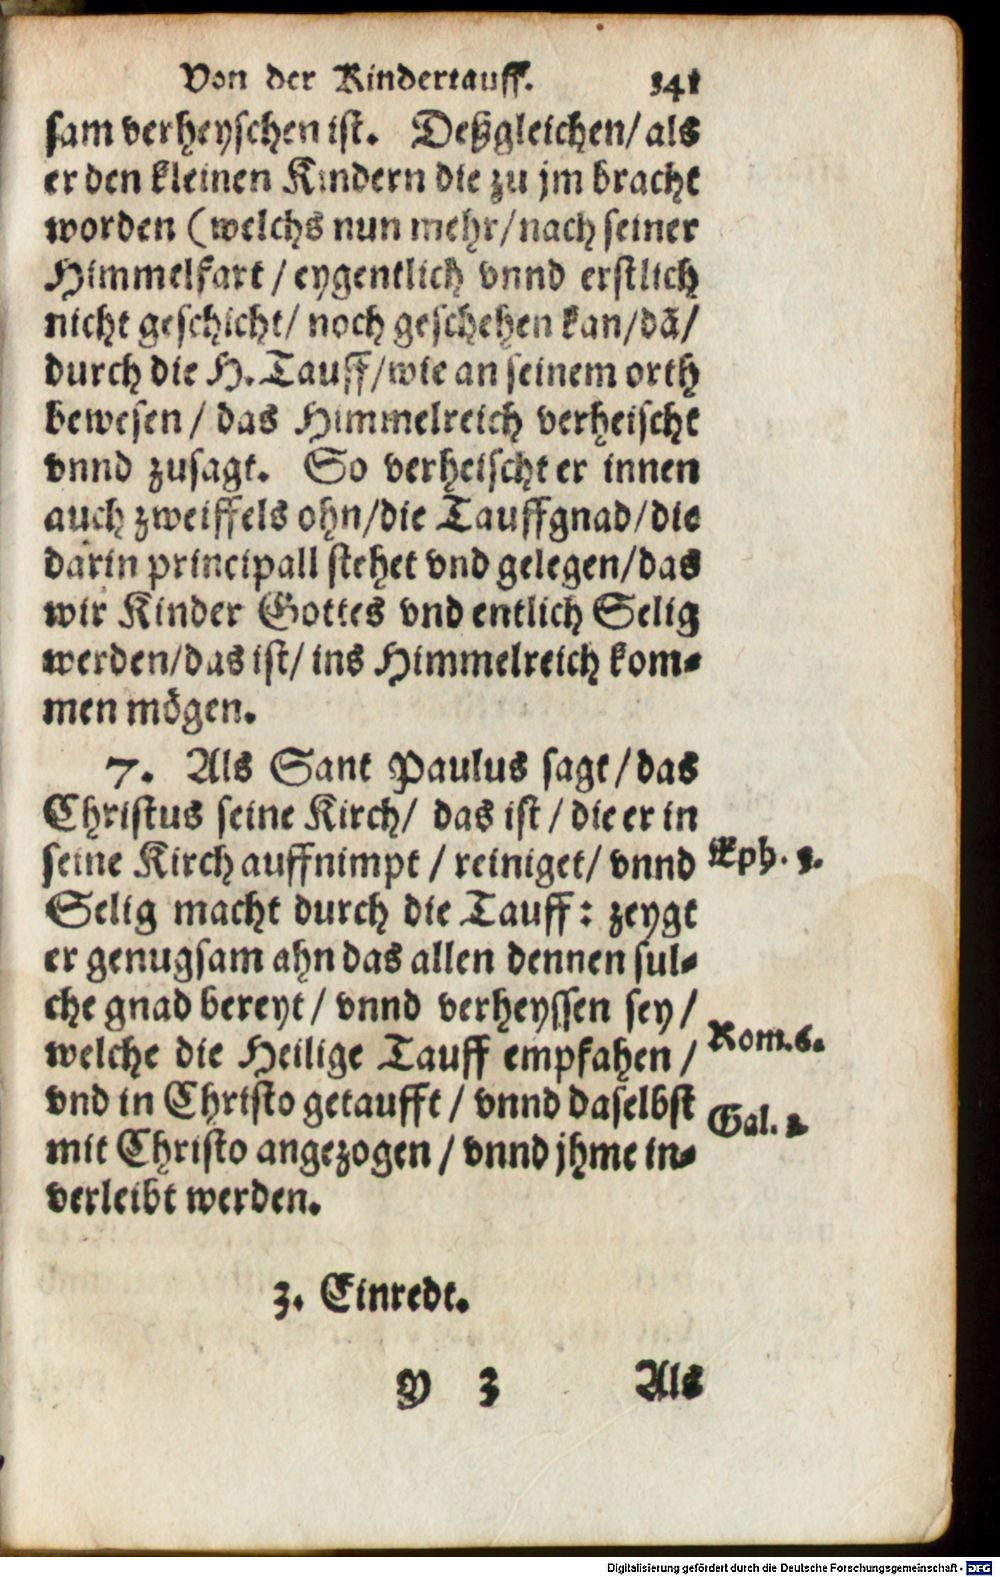 Von der Kindertauff. 341
sam verheyschen ist. Deßgleichen/ als
er den kleinen Kindern die zu jm bracht
worden (welchs nun mehr/ nach seiner
Himmelfart / eygentlich vnnd erstlich
nicht geschicht/ noch geschehen kan/ dã/
durch die H. Tauff/ wie an seinem orth
bewesen / das Himmelreich verheischt
vnnd zusagt. So verheischt er innen
auch zweiffels ohn/ die Tauffgnad/ die
darin principall stehet vnd gelegen/ das
wir Kinder Gottes vnd entlich Selig
werden/ das ist/ ins Himmelreich kom-
men mögen.
7. Als Sant Paulus sagt / das
Christus seine Kirch/ das ist / die er in
seine Kirch auffnimpt / reiniget/ vnnd
Eph. 5.
Selig macht durch die Tauff: zeygt
er genugsam ahn das allen dennen sul-
che gnad bereyt / vnnd verheyssen sey /
welche die Heilige Tauff empfahen /
Rom. 6.
vnd in Christo getaufft / vnnd daselbst
Gal. 3.
mit Christo angezogen / vnnd jhme in-
verleibt werden.
3. Einredt.
Y 3 Als
Digitalisierung gefördert durch die Deutsche Forschungsgemeinschaft - DFG